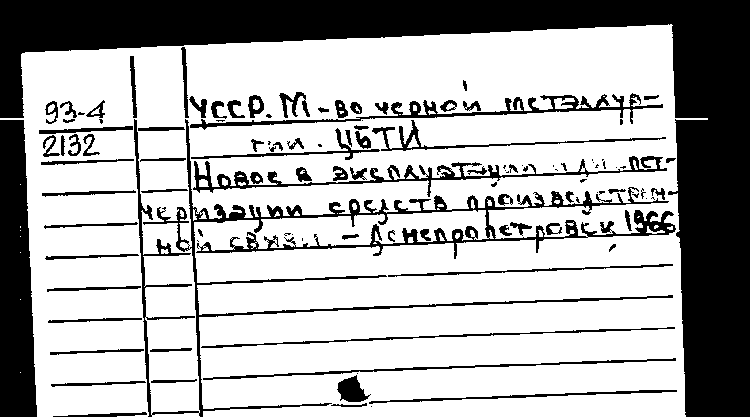 93-4 УССР. М-во черной металлур-
2132 гии. ЦБТИ
Новое в эксплуатации и
ризации средств производствен-
ной связи. - Днепропетровск 1966